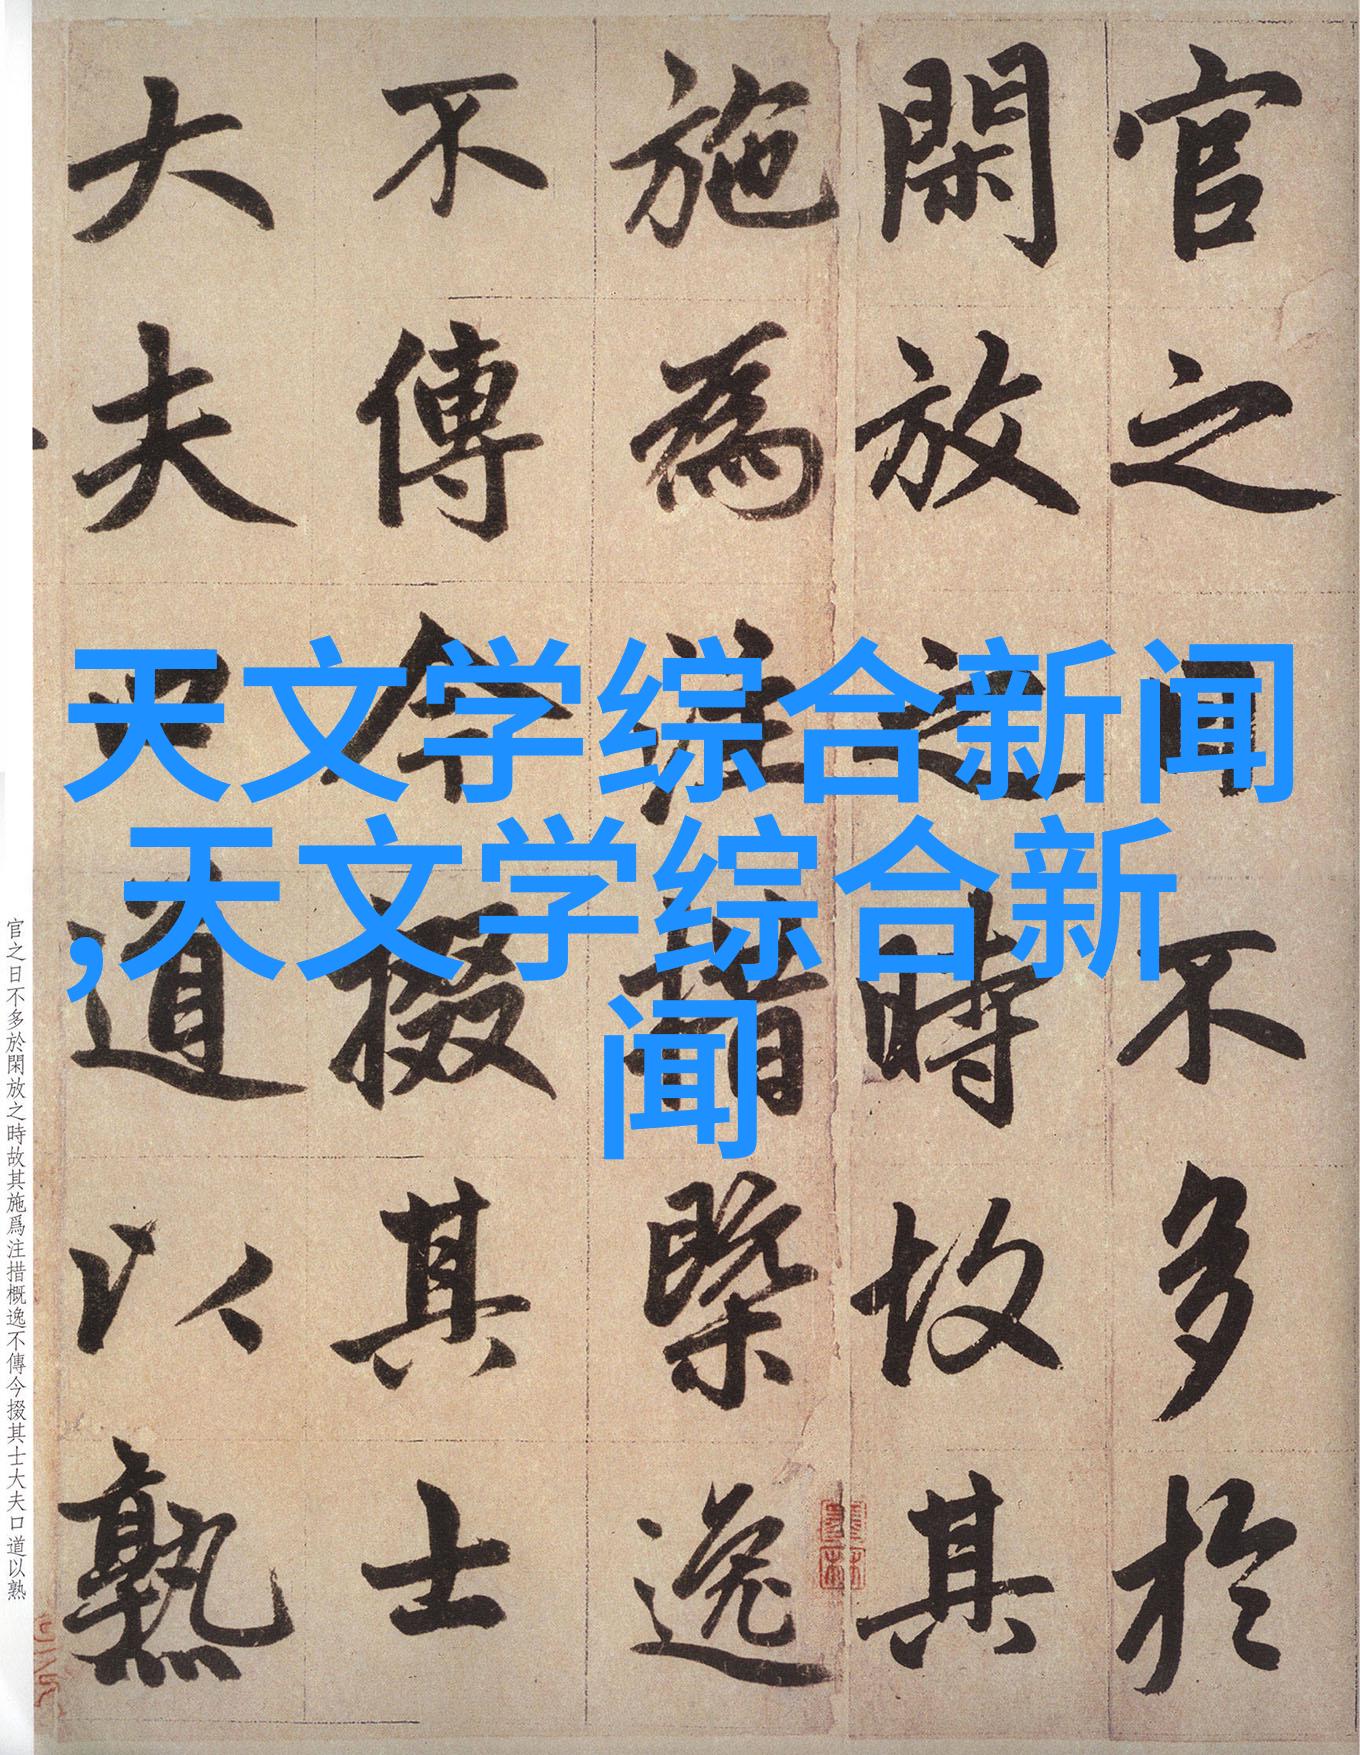 官之日不多於
閑放之時故其
施為注措槩逸
不傳今掇其士
大夫口道以熟
天文学综合新闻
,天文学综合新
闻
官之日不多於閑放之時故其施爲注措概逸不傳今掇其士大夫口道以熟